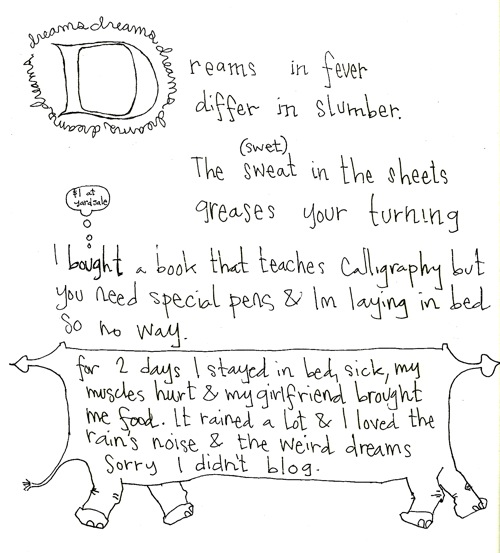 dreams dreams dreams dreams dreams dreams
Dreams in fever
differ in slumber.
(swet)
The sweat in the sheets
greases your turning
$1 at
yardsale
I bought a book that teaches Calligraphy but
you need special pens & Im laying in bed
So no way.
for 2 days I stayed in bed, sick, my
muscles hurt & my girlfriend brought
me food. It rained a lot & I loved the
rain's noise & the weird dreams
Sorry I didn't blog.